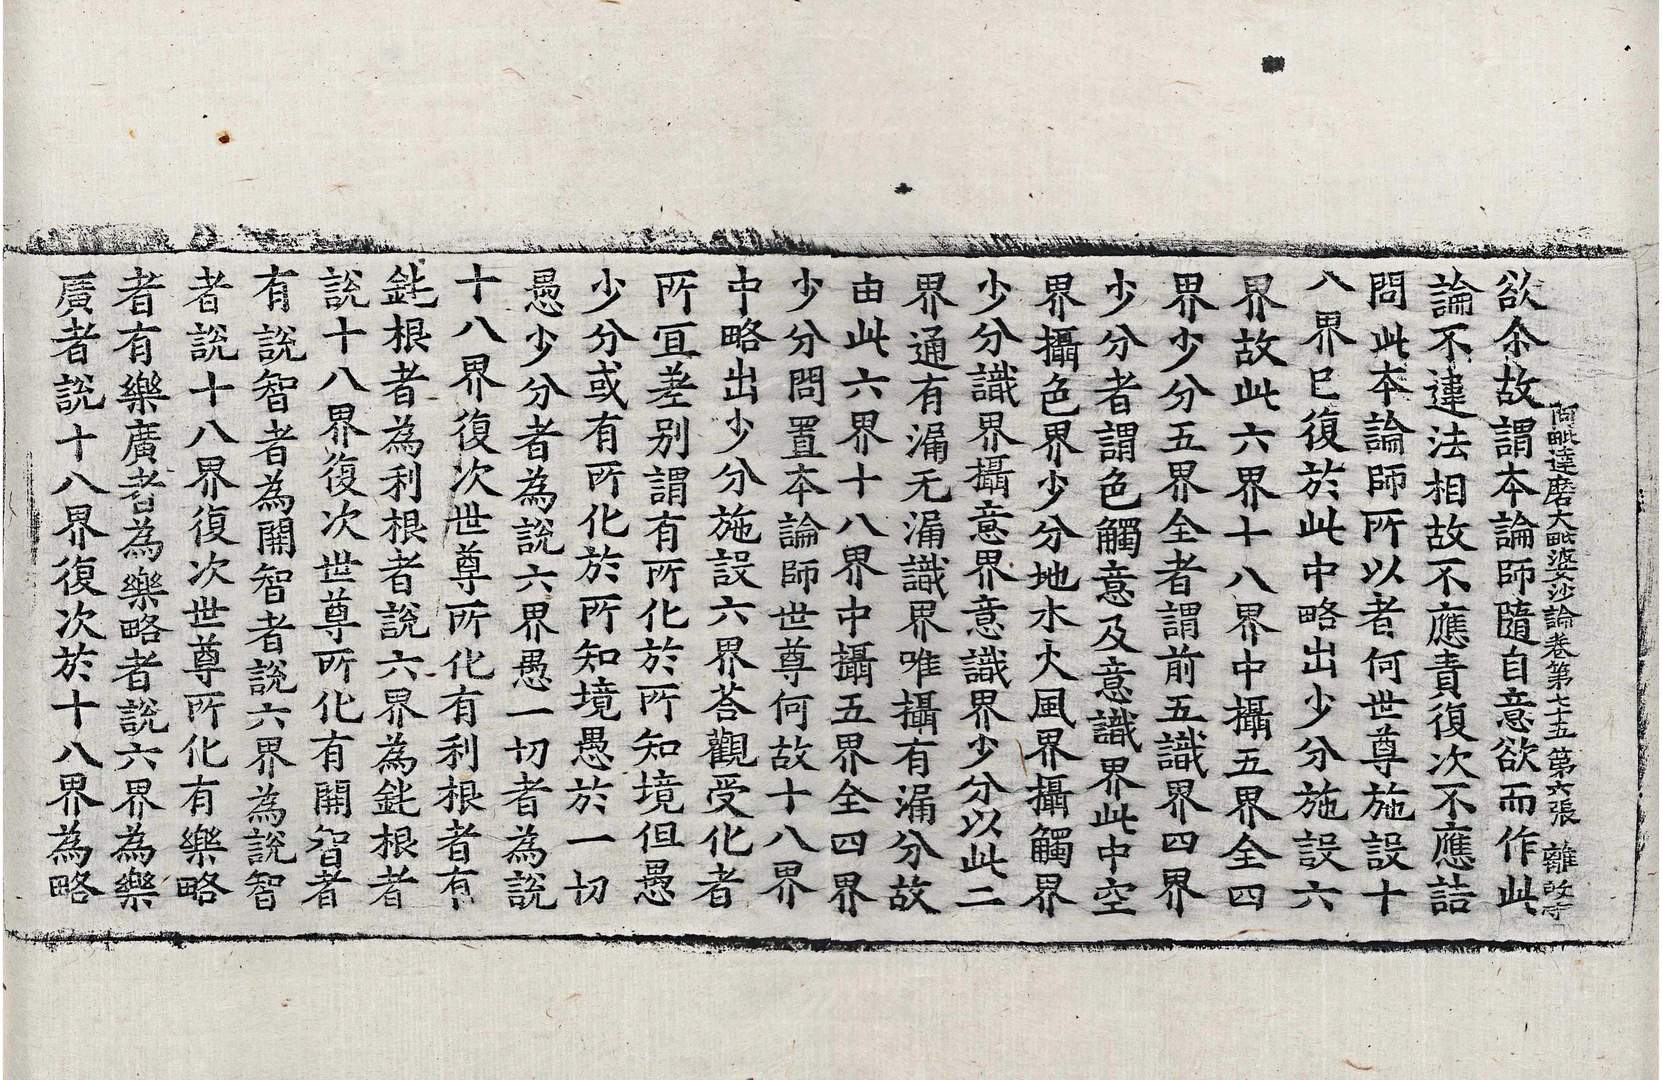 阿毗達磨大毗婆沙論卷第七十五 第六張 離
欲尒故謂本論師隨自意欲而作此
論不違法相故不應責復次不應詰
問此本論師所以者何世尊施設十
八界已復於此中略出少分施設六
界故此六界十八界中攝五界全四
界少分五界全者謂前五識界四界
少分者謂色觸意及意識界此中空
界攝色界少分地水火風界攝觸界
少分識界攝意界意識界少分以此二
界通有漏无漏識界唯攝有漏分故
由此六界十八界中攝五界全四界
少分問置本論師世尊何故十八界
中略出少分施設六界荅觀受化者
所宜差别謂有所化於所知境但愚
少分或有所化於所知境愚於一切
愚少分者為說六界愚一切者為說
十八界復次世尊所化有利根者有
鈍根者為利根者說六界為鈍根者
說十八界復次世尊所化有開智者
有說智者為開智者說六界為說智
者說十八界復次世尊所化有樂略
者有樂廣者為樂略者說六界為樂
廣者說十八界復次於十八界為略